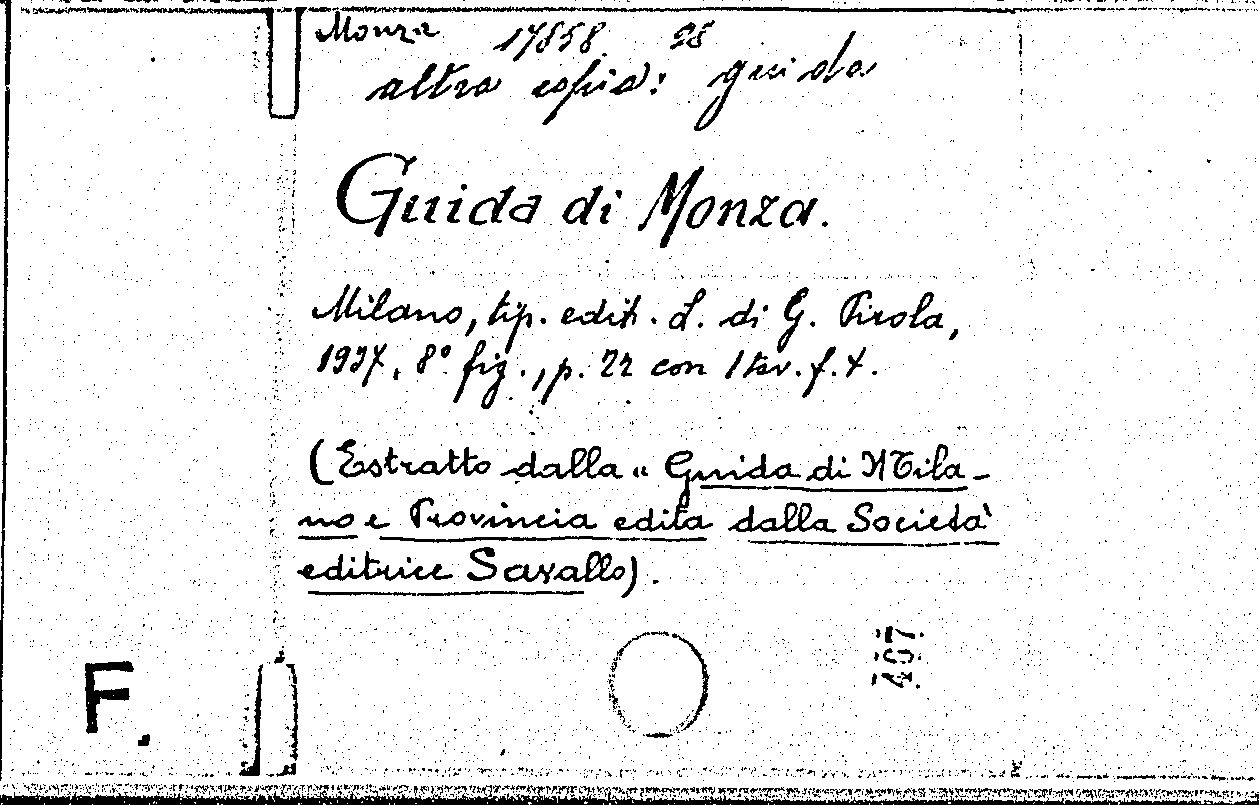 Monza 17858 28
altra copia: guida
Guida di Monza.
Milano, tip. edit. L. di G. Pirola,
1937, 8° fig., p. 22 con 1 tav. f. t.
(Estratto dalla "Guida di Mila-
no e Provincia edita dalla Società
editrice Savallo).
407
F.